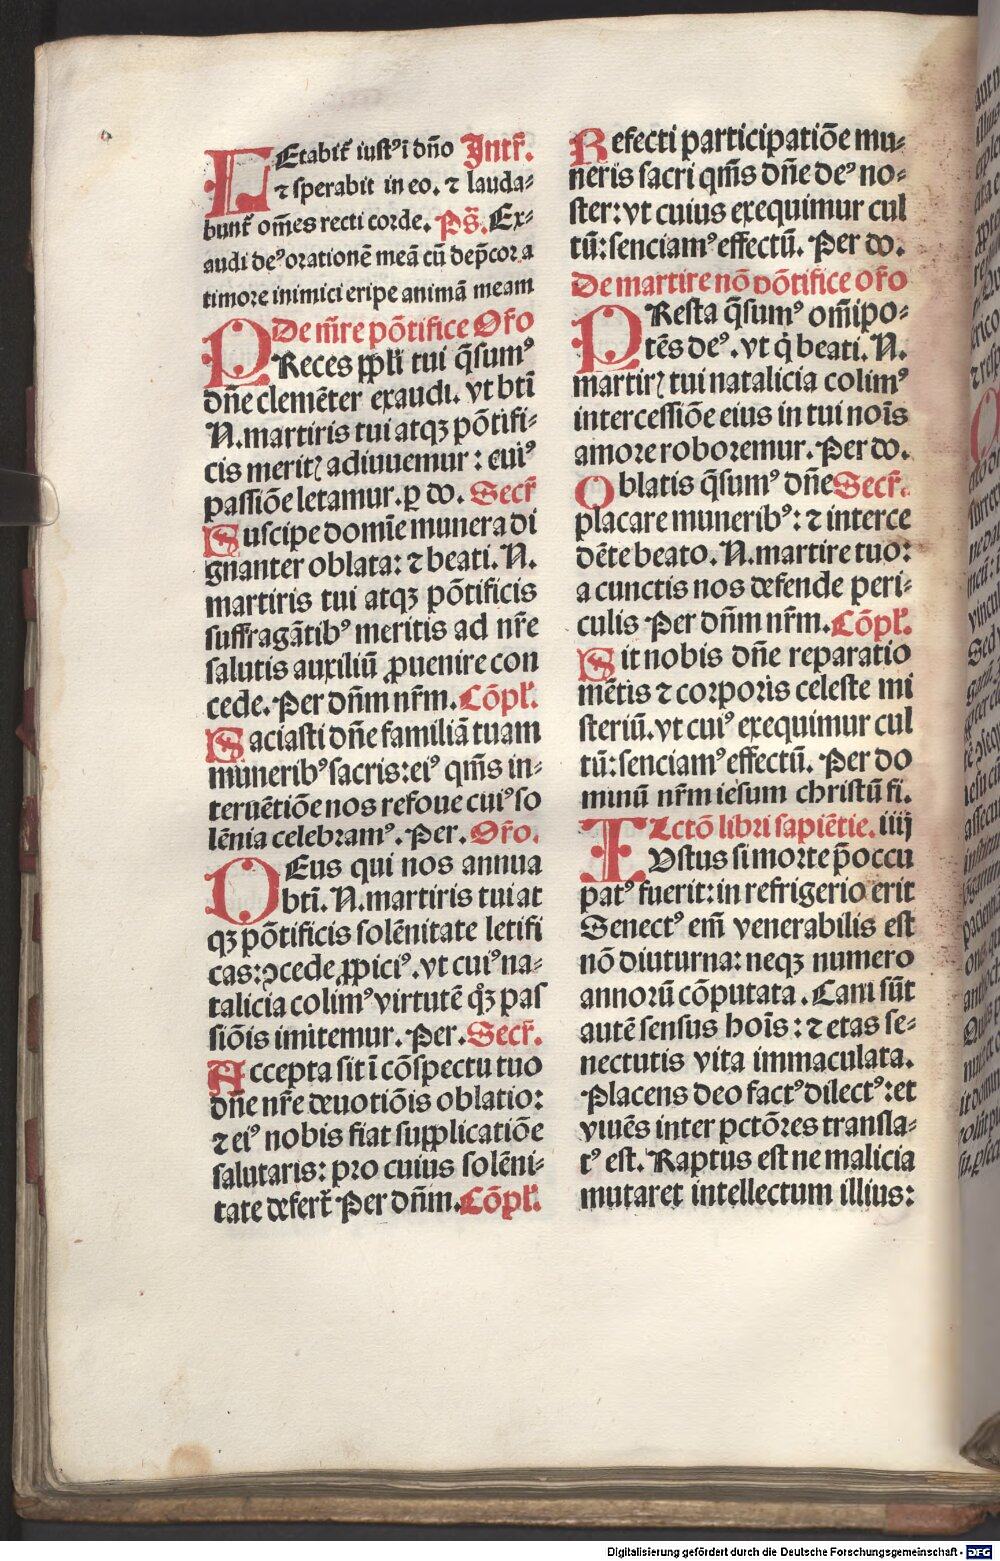 LEtabit᷑ iustꝰ ī dn̄o Intr̄.
⁊ sperabit in eo. ⁊ lauda⸗
bunt᷑ om̄es recti corde. Ps̄. Ex⸗
audi deꝰ orationē meā cū dep̄cor a
timore inimici eripe animā meam
De m̄re pōtifice Oro
PReces pp̄li tui q̄sumꝰ
dn̄e clemēter exaudi. vt bt̄i
N. martiris tui atqꝫ pōtifi⸗
cis meritꝭ adiuuemur: cuiꝰ
passiōe letamur. ꝑ do. Secr̄
Suscipe domīe munera di
gnanter oblata: ⁊ beati. N.
martiris tui atqꝫ pōtificis
suffragātibꝰ meritis ad nr̄e
salutis auxiliū ꝓuenire con
cede. Per dn̄m nr̄m. Cōpl̄.
Saciasti dn̄e familiā tuam
muneribꝰ sacris: eiꝰ qm̄s in⸗
teruētiōe nos refoue cuiꝰ so
lēnia celebramꝰ. Per. Or̄o.
DEus qui nos annua
bt̄i. N. martiris tui at
qꝫ pōtificis solēnitate letifi
cas: ꝯcede ꝓpiciꝰ. vt cuiꝰ na⸗
talicia colimꝰ virtutē qꝫ pas
siōis imitemur. Per. Secr̄.
Accepta sit ī cōspectu tuo
dn̄e nr̄e deuotiōis oblatio:
⁊ eiꝰ nobis fiat supplicatiōe
salutaris: pro cuius solēni⸗
tate defert᷑ Per dn̄m. Cōpl̄.
Refecti participatiōe mu⸗
neris sacri qm̄s dn̄e deꝰ no⸗
ster: vt cuius exequimur cul
tū: senciamꝰ effectū. Per do.
De martire nō pōtifice oro
PResta q̄sumꝰ om̄ipo⸗
tēs deꝰ. vt qͥ beati. N.
martirꝭ tui natalicia colimꝰ
intercessiōe eius in tui noīs
amore roboremur. Per do.
Oblatis q̄sumꝰ dn̄e Secr̄.
placare muneribꝰ: ⁊ interce
dēte beato. N. martire tuo:
a cunctis nos defende peri⸗
culis Per dn̄m nr̄m. Cōpl̄.
Sit nobis dn̄e reparatio
mētis ⁊ corporis celeste mi
steriū. vt cuiꝰ exequimur cul
tū: senciamꝰ effectū. Per do
minū nr̄m iesum christū fi.
Lctō libri sapiētie. iiij
IVstus si morte p̄occu
patꝰ fuerit: in refrigerio erit
Senectꝰ em̄ venerabilis est
nō diuturna: neqꝫ numero
annorū cōputata. Cani sūt
autē sensus hoīs: ⁊ etas se⸗
nectutis vita immaculata.
Placens deo factꝰ dilectꝰ: et
viuēs inter pctōres transla⸗
tꝰ est. Raptus est ne malicia
mutaret intellectum illius:
Digitalisierung gefördert durch die Deutsche Forschungsgemeinschaft - DFG